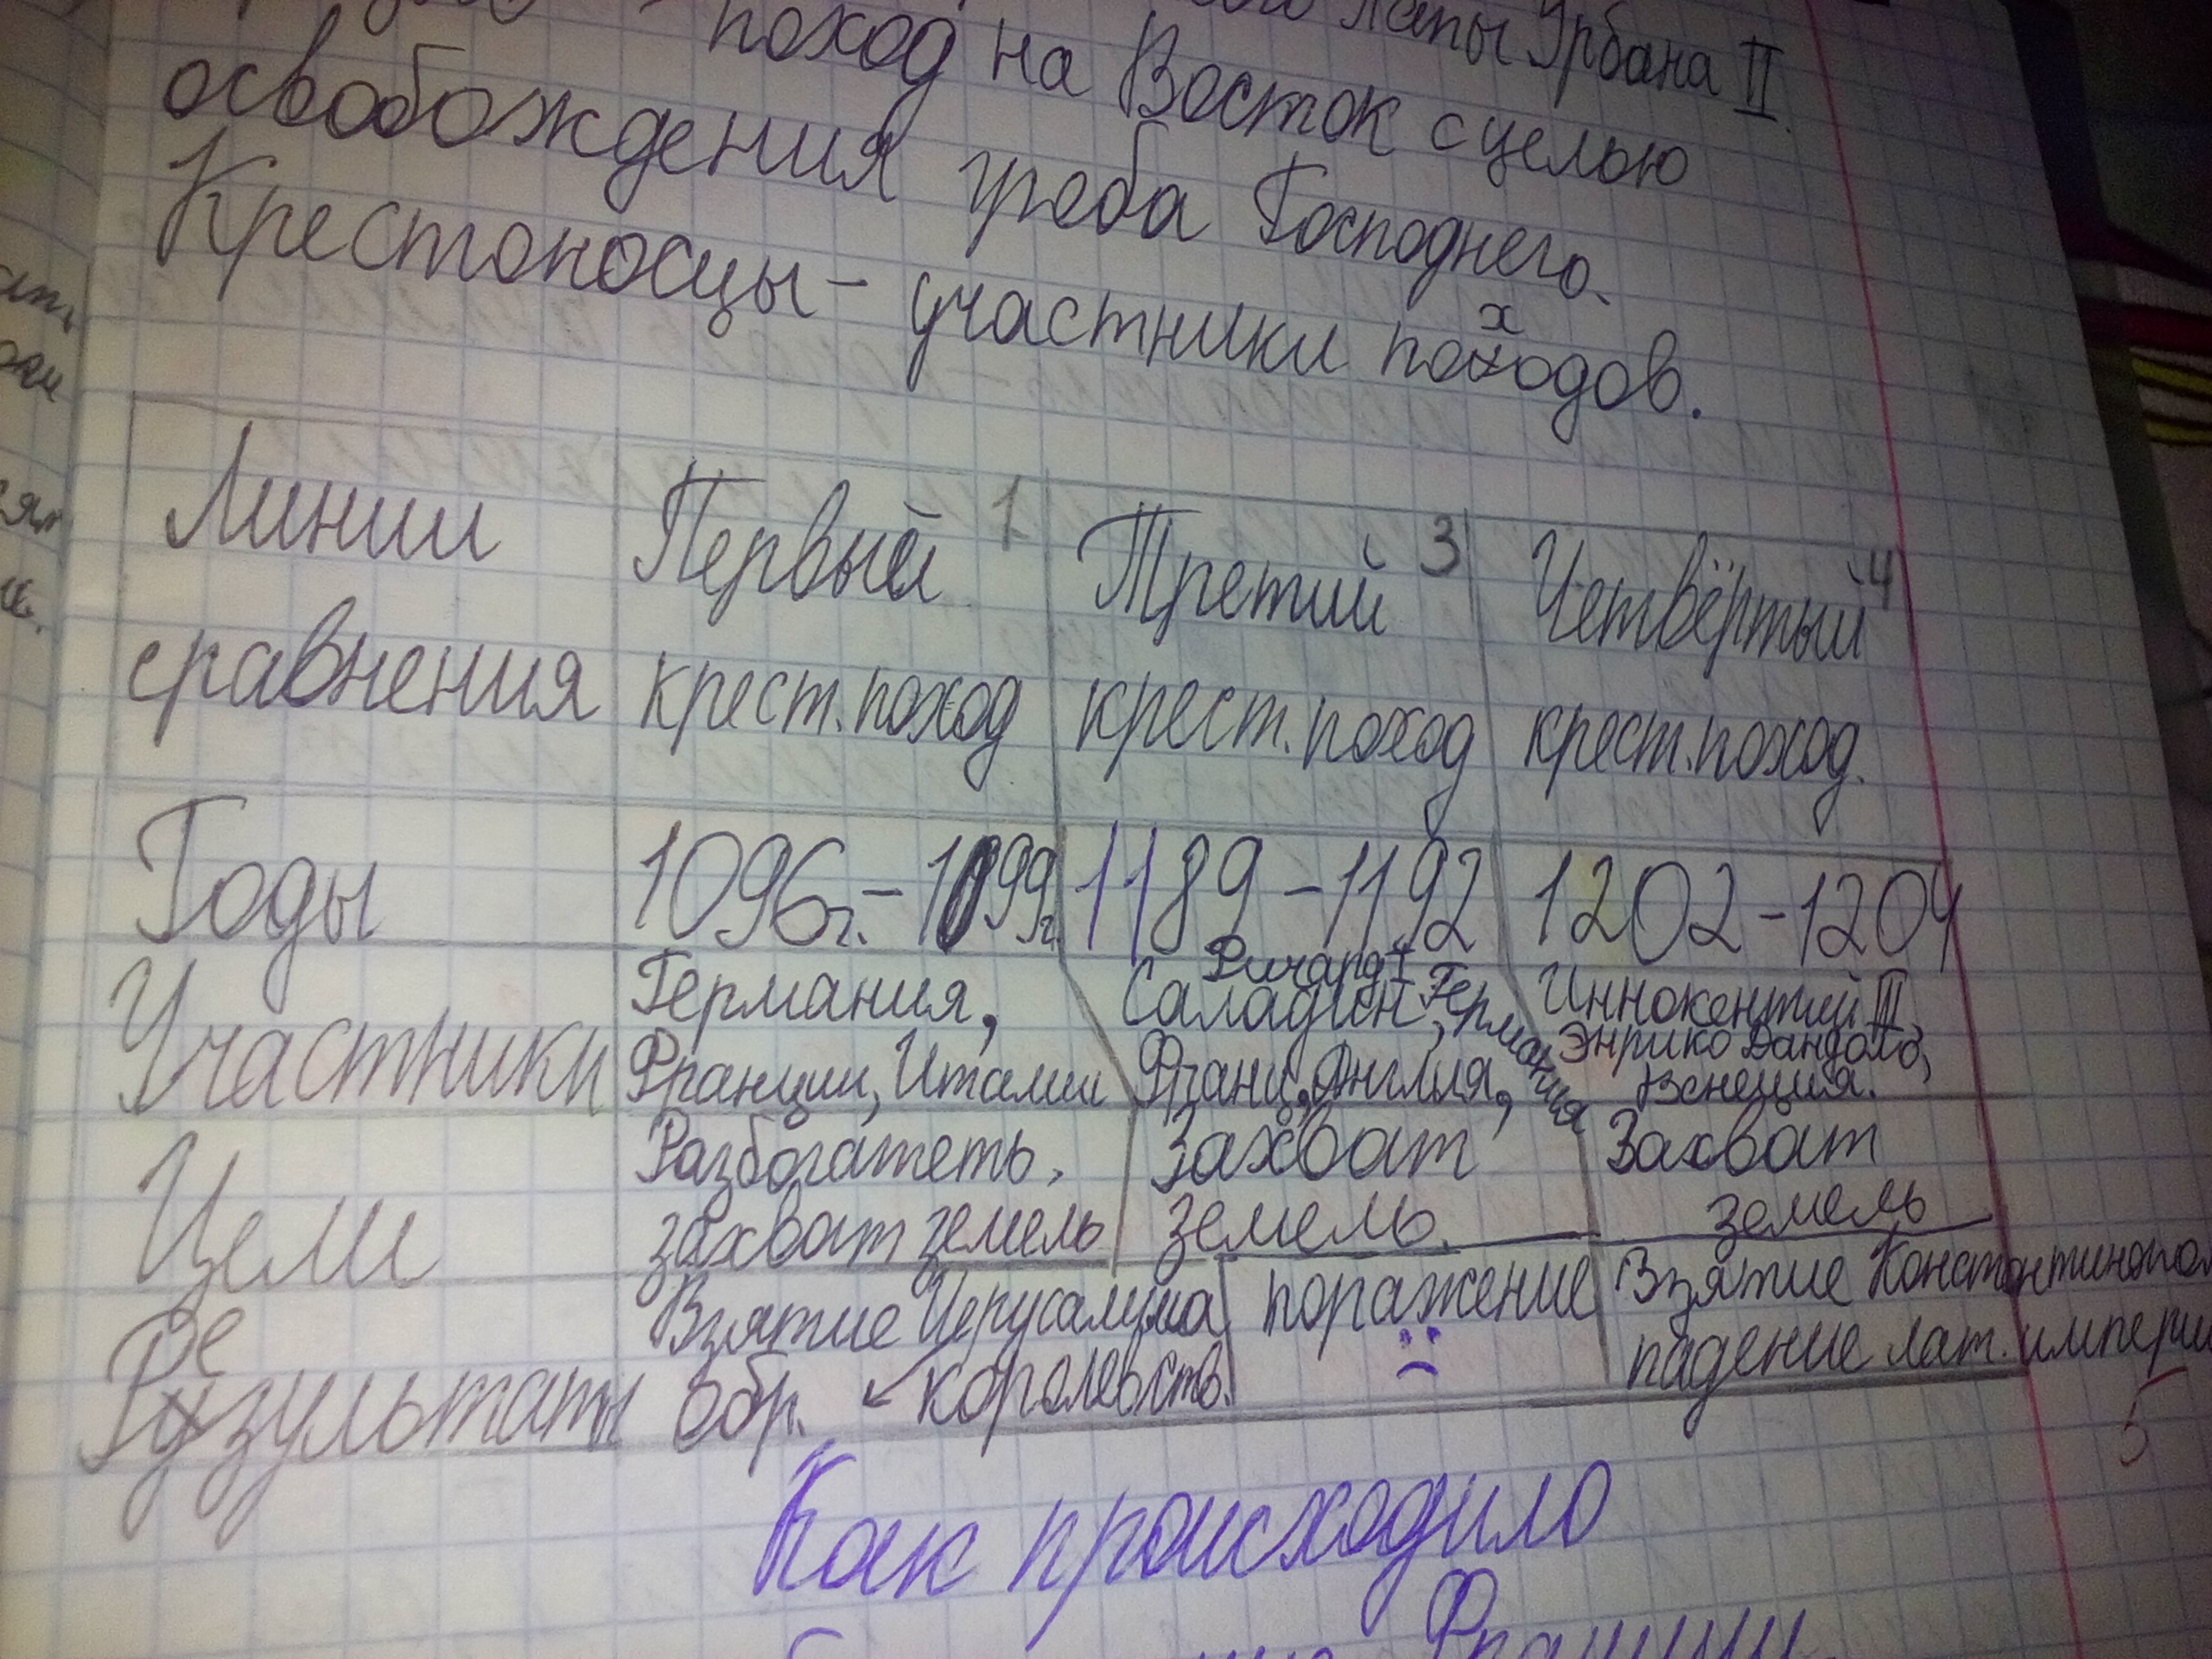 Папы Урбана II.
поход на Восток с целью
освобождения гроба Господнего.
Крестоносцы - участники походов.
х
Линии Первый 1 Третий 3 Четвёртый 4
сравнения крест. поход крест. поход крест. поход.
Годы 1096г. - 1099г. 1189 - 1192 1202 - 1204
Участники Германия, Ричард I Саладин, Германия Иннокентий III,
Франции, Италии Франц., Англия, Энрико Дандоло,
Венеция.
Цели Разбогатеть, Захват Захват
захват земель земель. земель
Результаты Взятие Иерусалима поражение Взятие Константинопол
обр. ← королевств. падение лат. импери
5
Как происходило
Франции